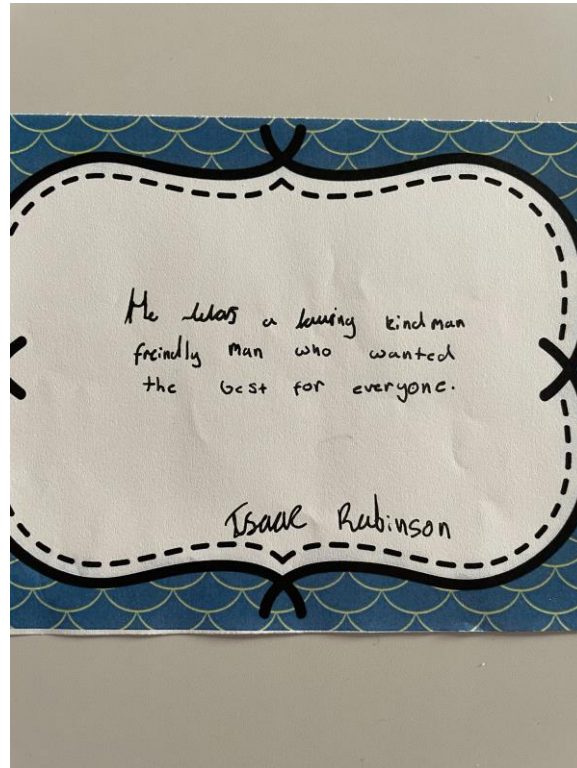 He was a loving kind man
freindly man who wanted
the best for everyone.
Isaac Rubinson